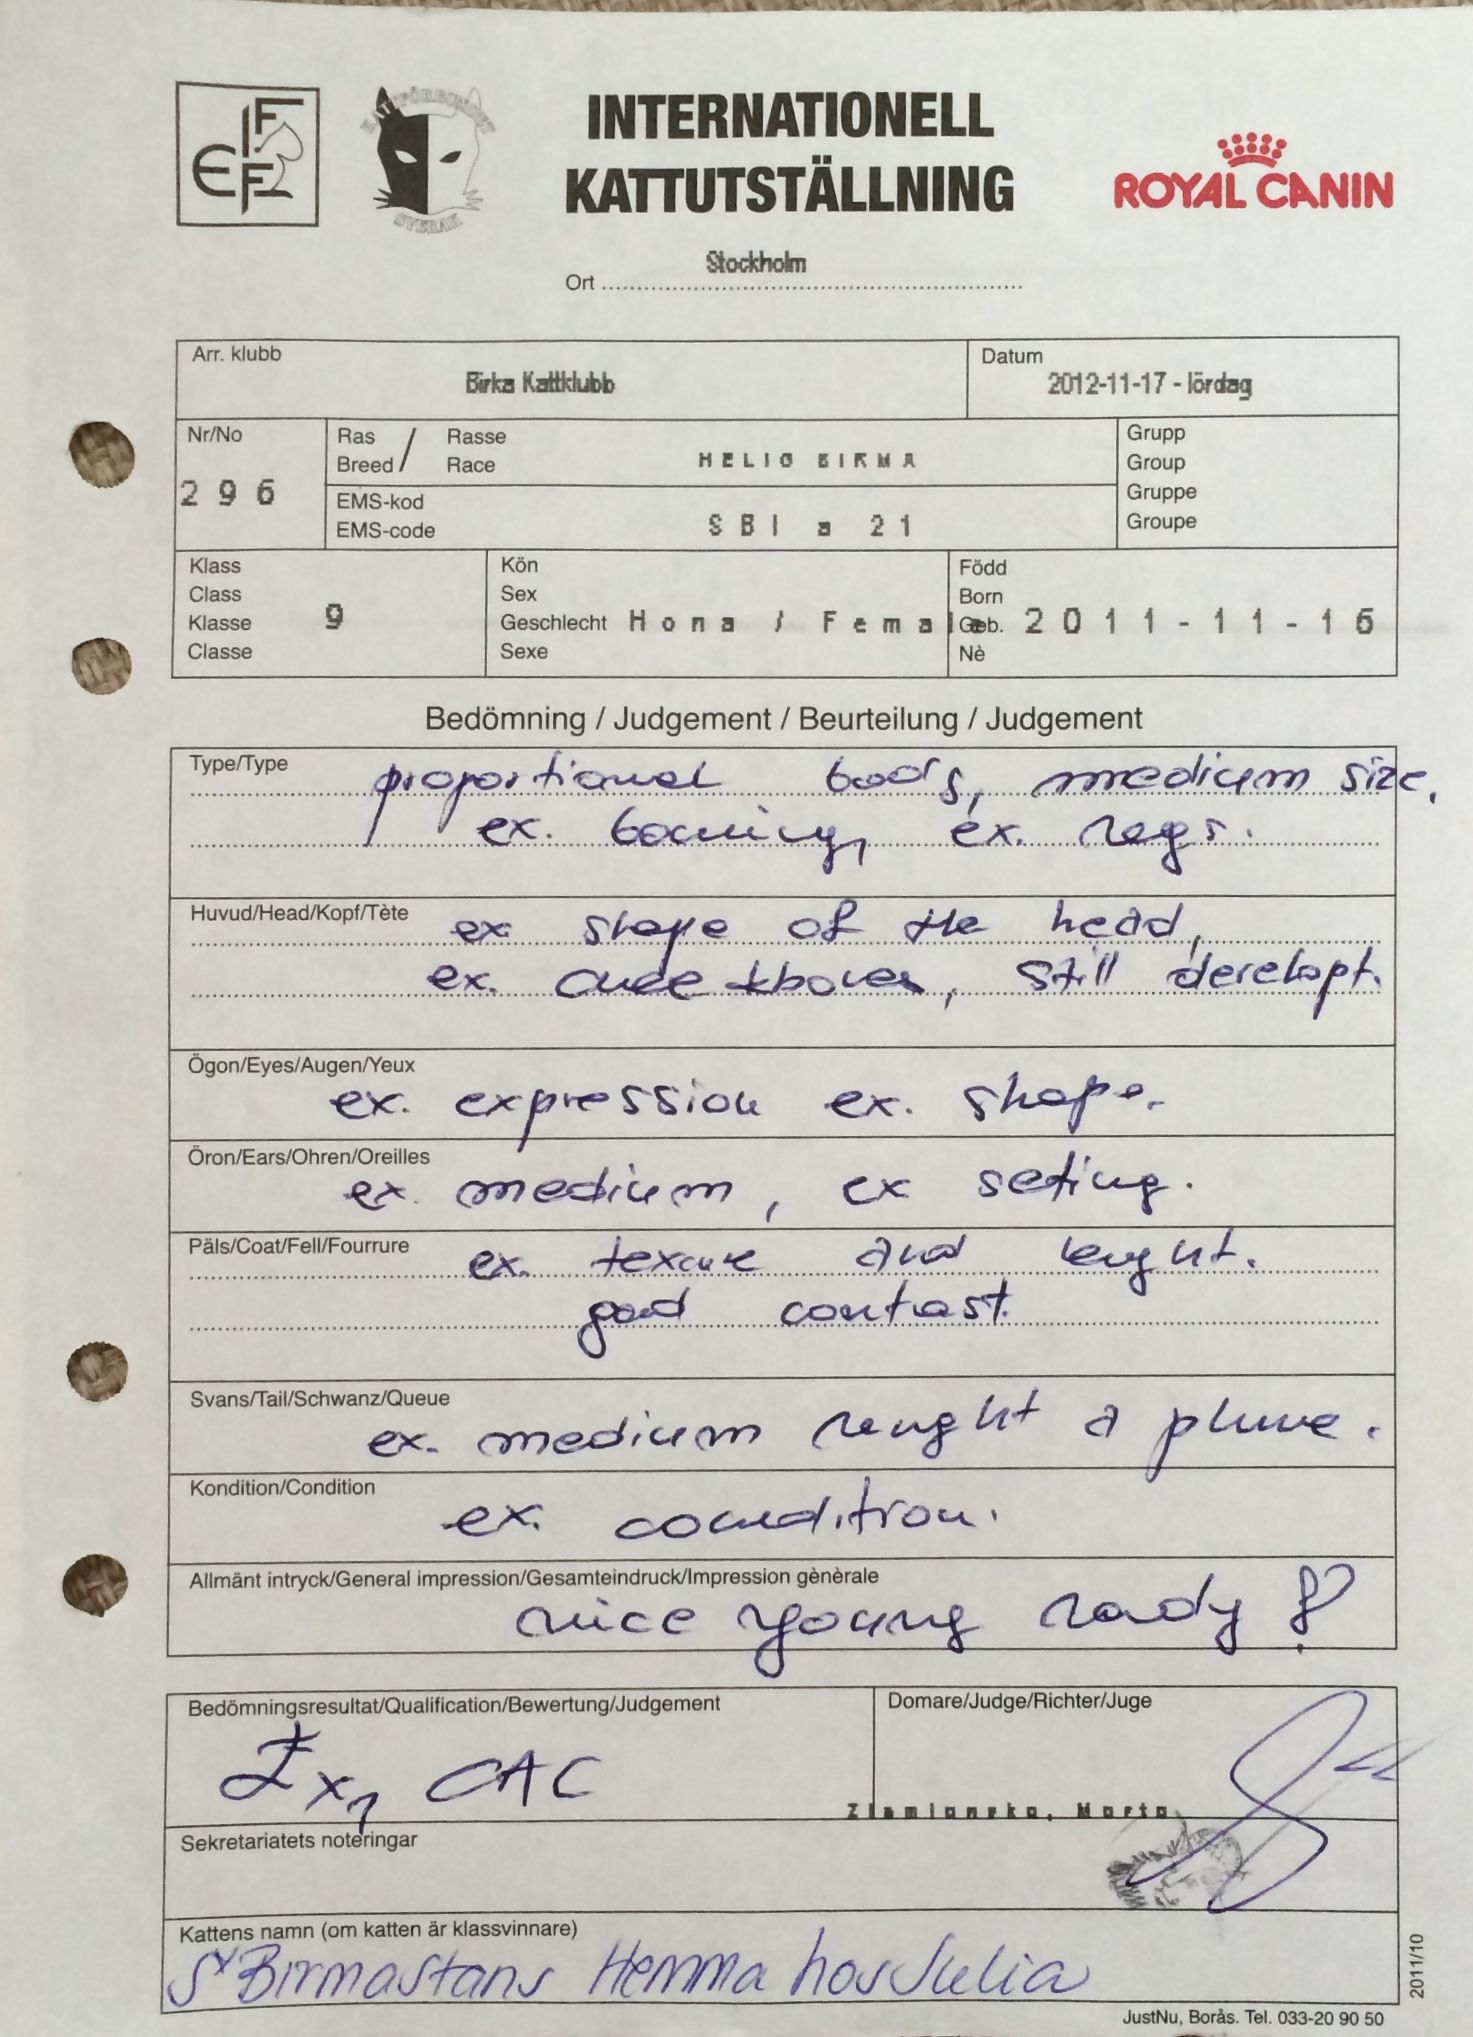 FIFE
KATTFÖRBUNDET
SVERAK
INTERNATIONELL
KATTUTSTÄLLNING
ROYAL CANIN
Ort Stockholm
Arr. klubb
Birka Kattklubb
Datum
2012-11-17 - lördag
Nr/No
296
Ras / Rasse
Breed / Race
HELIG BIRMA
EMS-kod
EMS-code
SBI a 21
Grupp
Group
Gruppe
Groupe
Klass
Class
Klasse 9
Classe
Kön
Sex
Geschlecht Hona / Female
Sexe
Född
Born
Geb. 2011-11-16
Nè
Bedömning / Judgement / Beurteilung / Judgement
Type/Type
proportional body, medium size.
ex. boening, ex. legs.
Huvud/Head/Kopf/Tète
ex shape of the head,
ex. cheekbones, still developt.
Ögon/Eyes/Augen/Yeux
ex. expression ex. shape.
Öron/Ears/Ohren/Oreilles
ex. medium, ex seting.
Päls/Coat/Fell/Fourrure
ex. texture and lenght.
good contrast.
Svans/Tail/Schwanz/Queue
ex. medium lenght a plume.
Kondition/Condition
ex. condition.
Allmänt intryck/General impression/Gesamteindruck/Impression gènèrale
nice young lady!
Bedömningsresultat/Qualification/Bewertung/Judgement
Ex1 CAC
Domare/Judge/Richter/Juge
Sekretariatets noteringar
Kattens namn (om katten är klassvinnare)
S*Birmastans Hemma hos Julia
2011/10
JustNu, Borås. Tel. 033-20 90 50